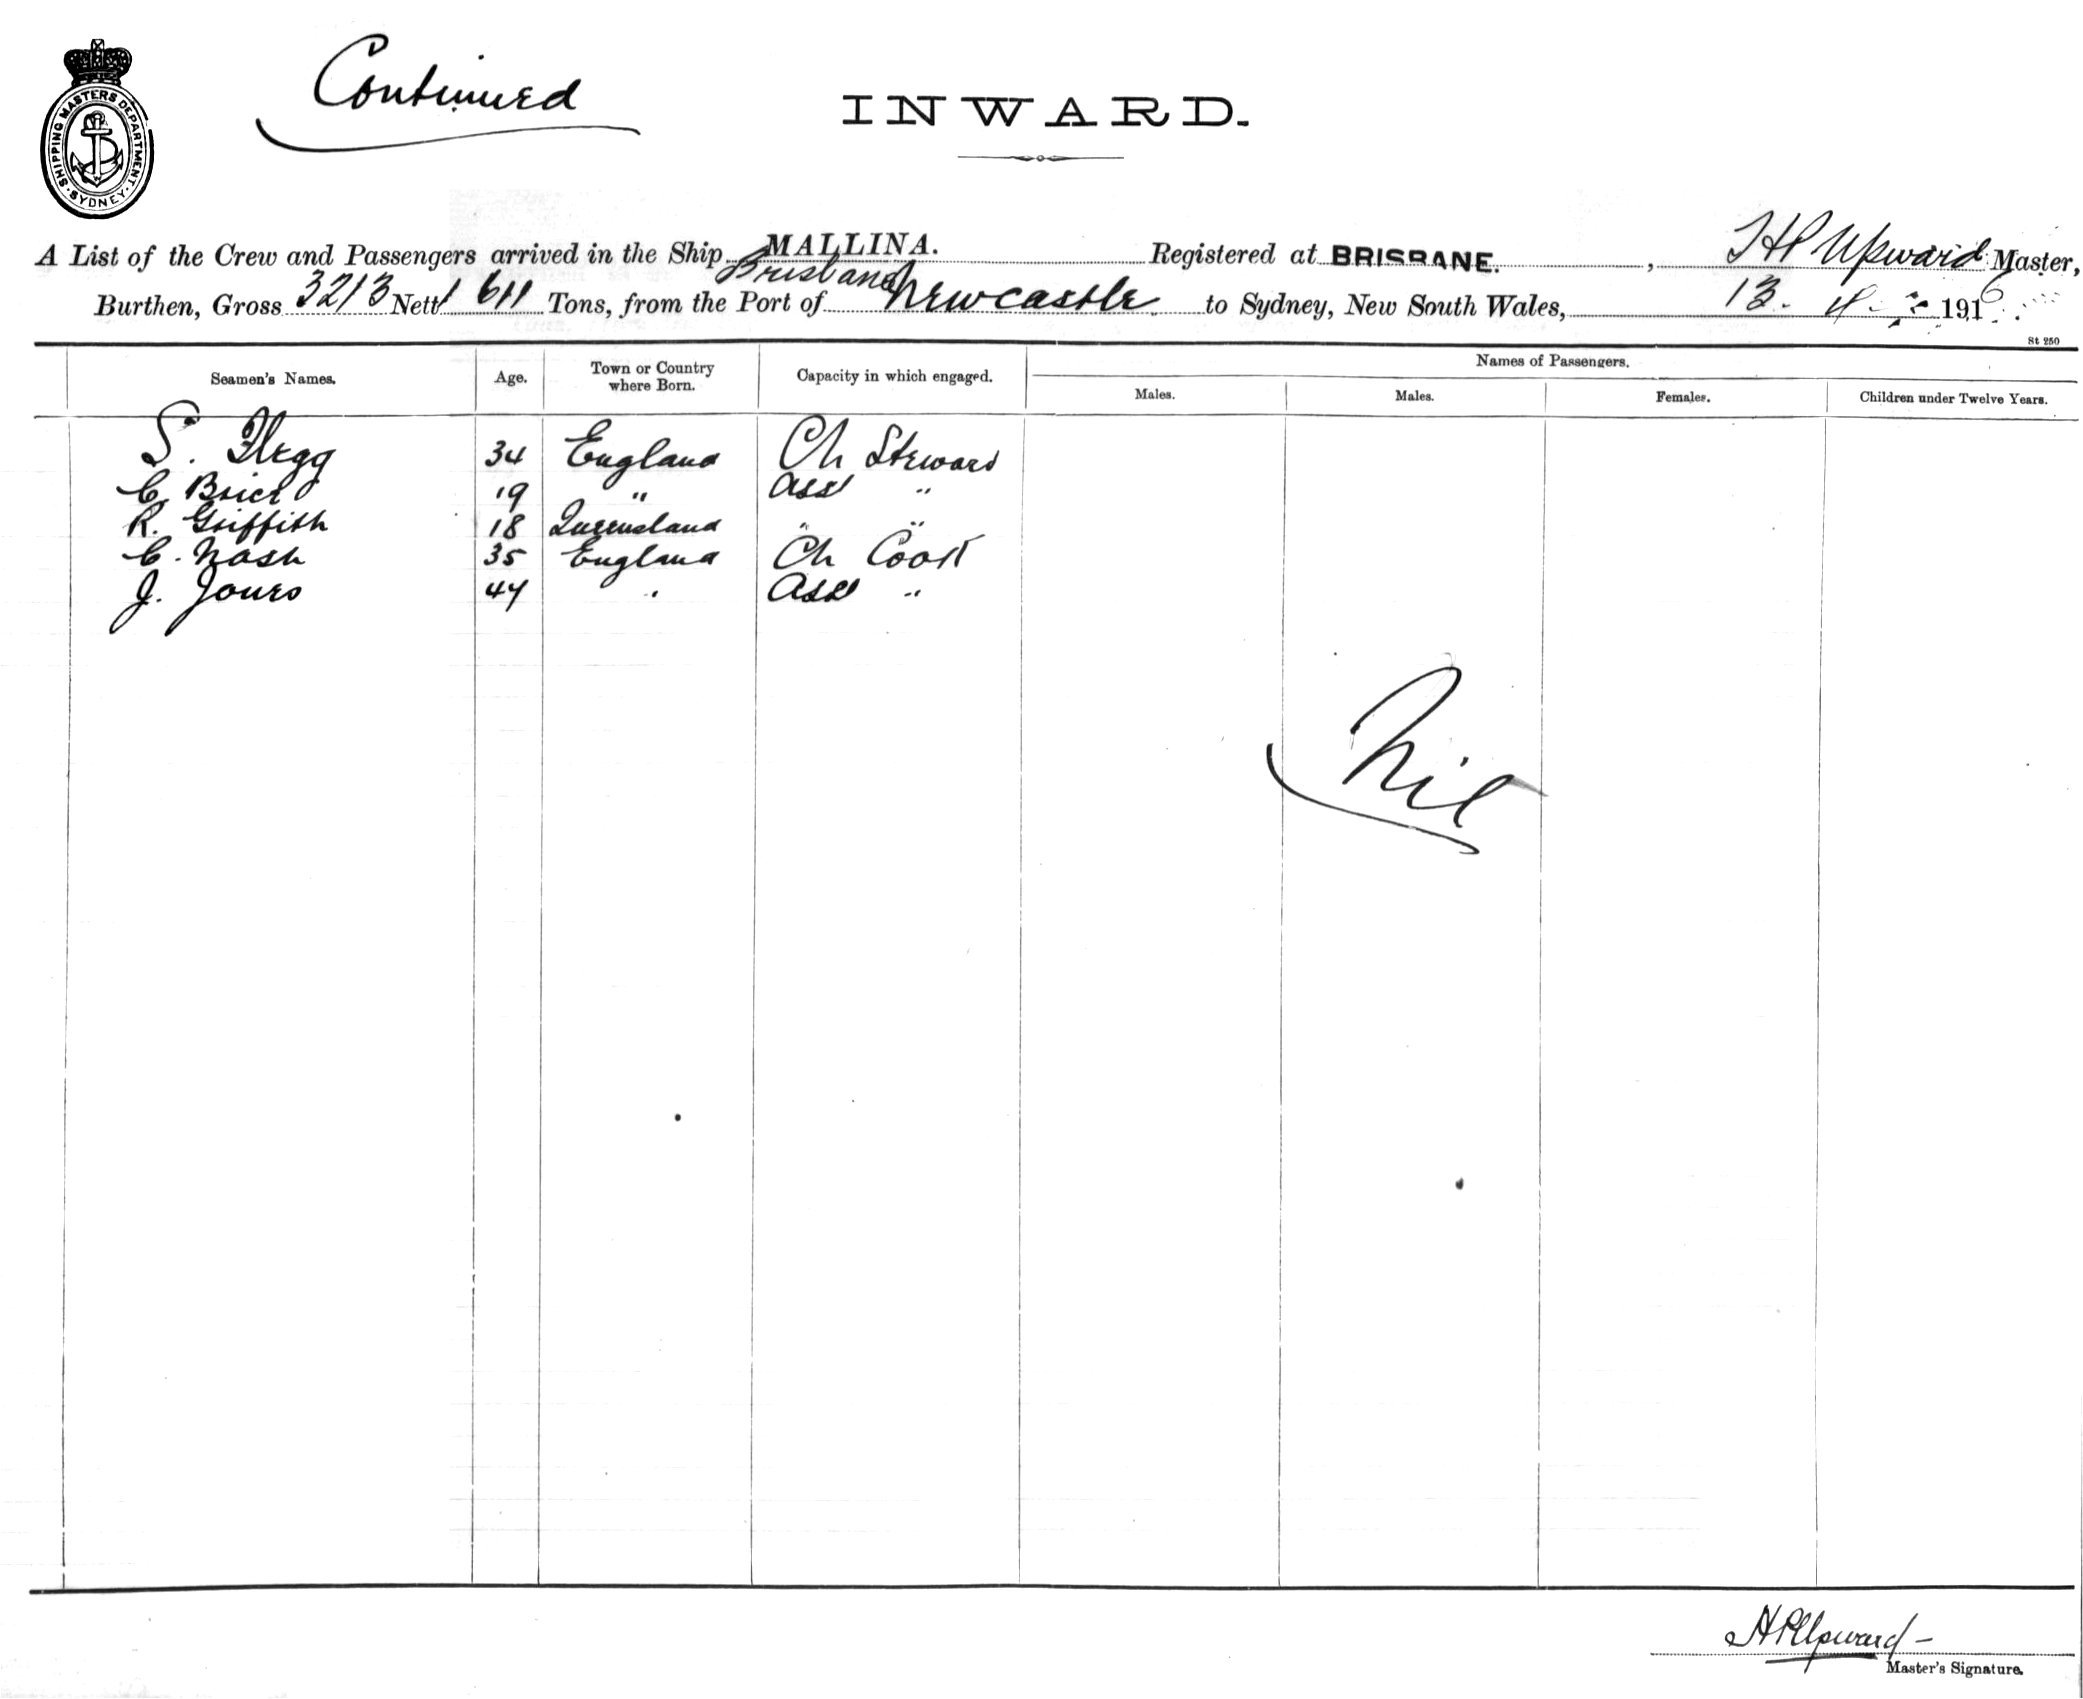 SHIPPING MASTERS DEPARTMENT. SYDNEY
Continued
INWARD.
A List of the Crew and Passengers arrived in the Ship MALLINA. Registered at BRISBANE. , H P Upward Master,
Brisbane
Burthen, Gross 3213 Nett 1611 Tons, from the Port of Newcastle to Sydney, New South Wales, 13. 4 1916
St 250
Seamen's Names. Age. Town or Country where Born. Capacity in which engaged. Names of Passengers.
Males. Males. Females. Children under Twelve Years.
S. Flegg 34 England Ch Steward
C. Brice 19 " Asst "
R. Griffith 18 Queensland " "
C. Nash 35 England Ch Cook
J. Jones 44 " Asst "
Nil
H P Upward
Master's Signature.